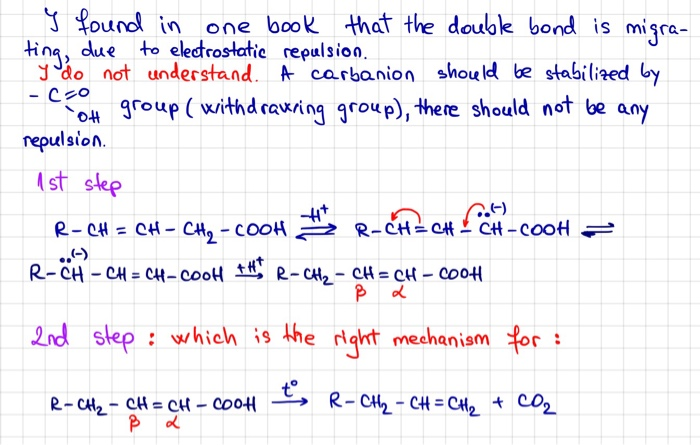 I found in one book that the double bond is migra-
ting, due to electrostatic repulsion.
I do not understand. A carbanion should be stabilized by
- C=O
OH group (withdrawring group), there should not be any
repulsion.
1st step
R-CH=CH-CH₂-COOH -H⁺ ⇌ R-CH=CH-CH(-)-COOH ⇌
R-CH(-)-CH=CH-COOH +H⁺ ⇌ R-CH₂-CH=CH-COOH
β α
2nd step : which is the right mechanism for :
R-CH₂-CH=CH-COOH t° → R-CH₂-CH=CH₂ + CO₂
β α